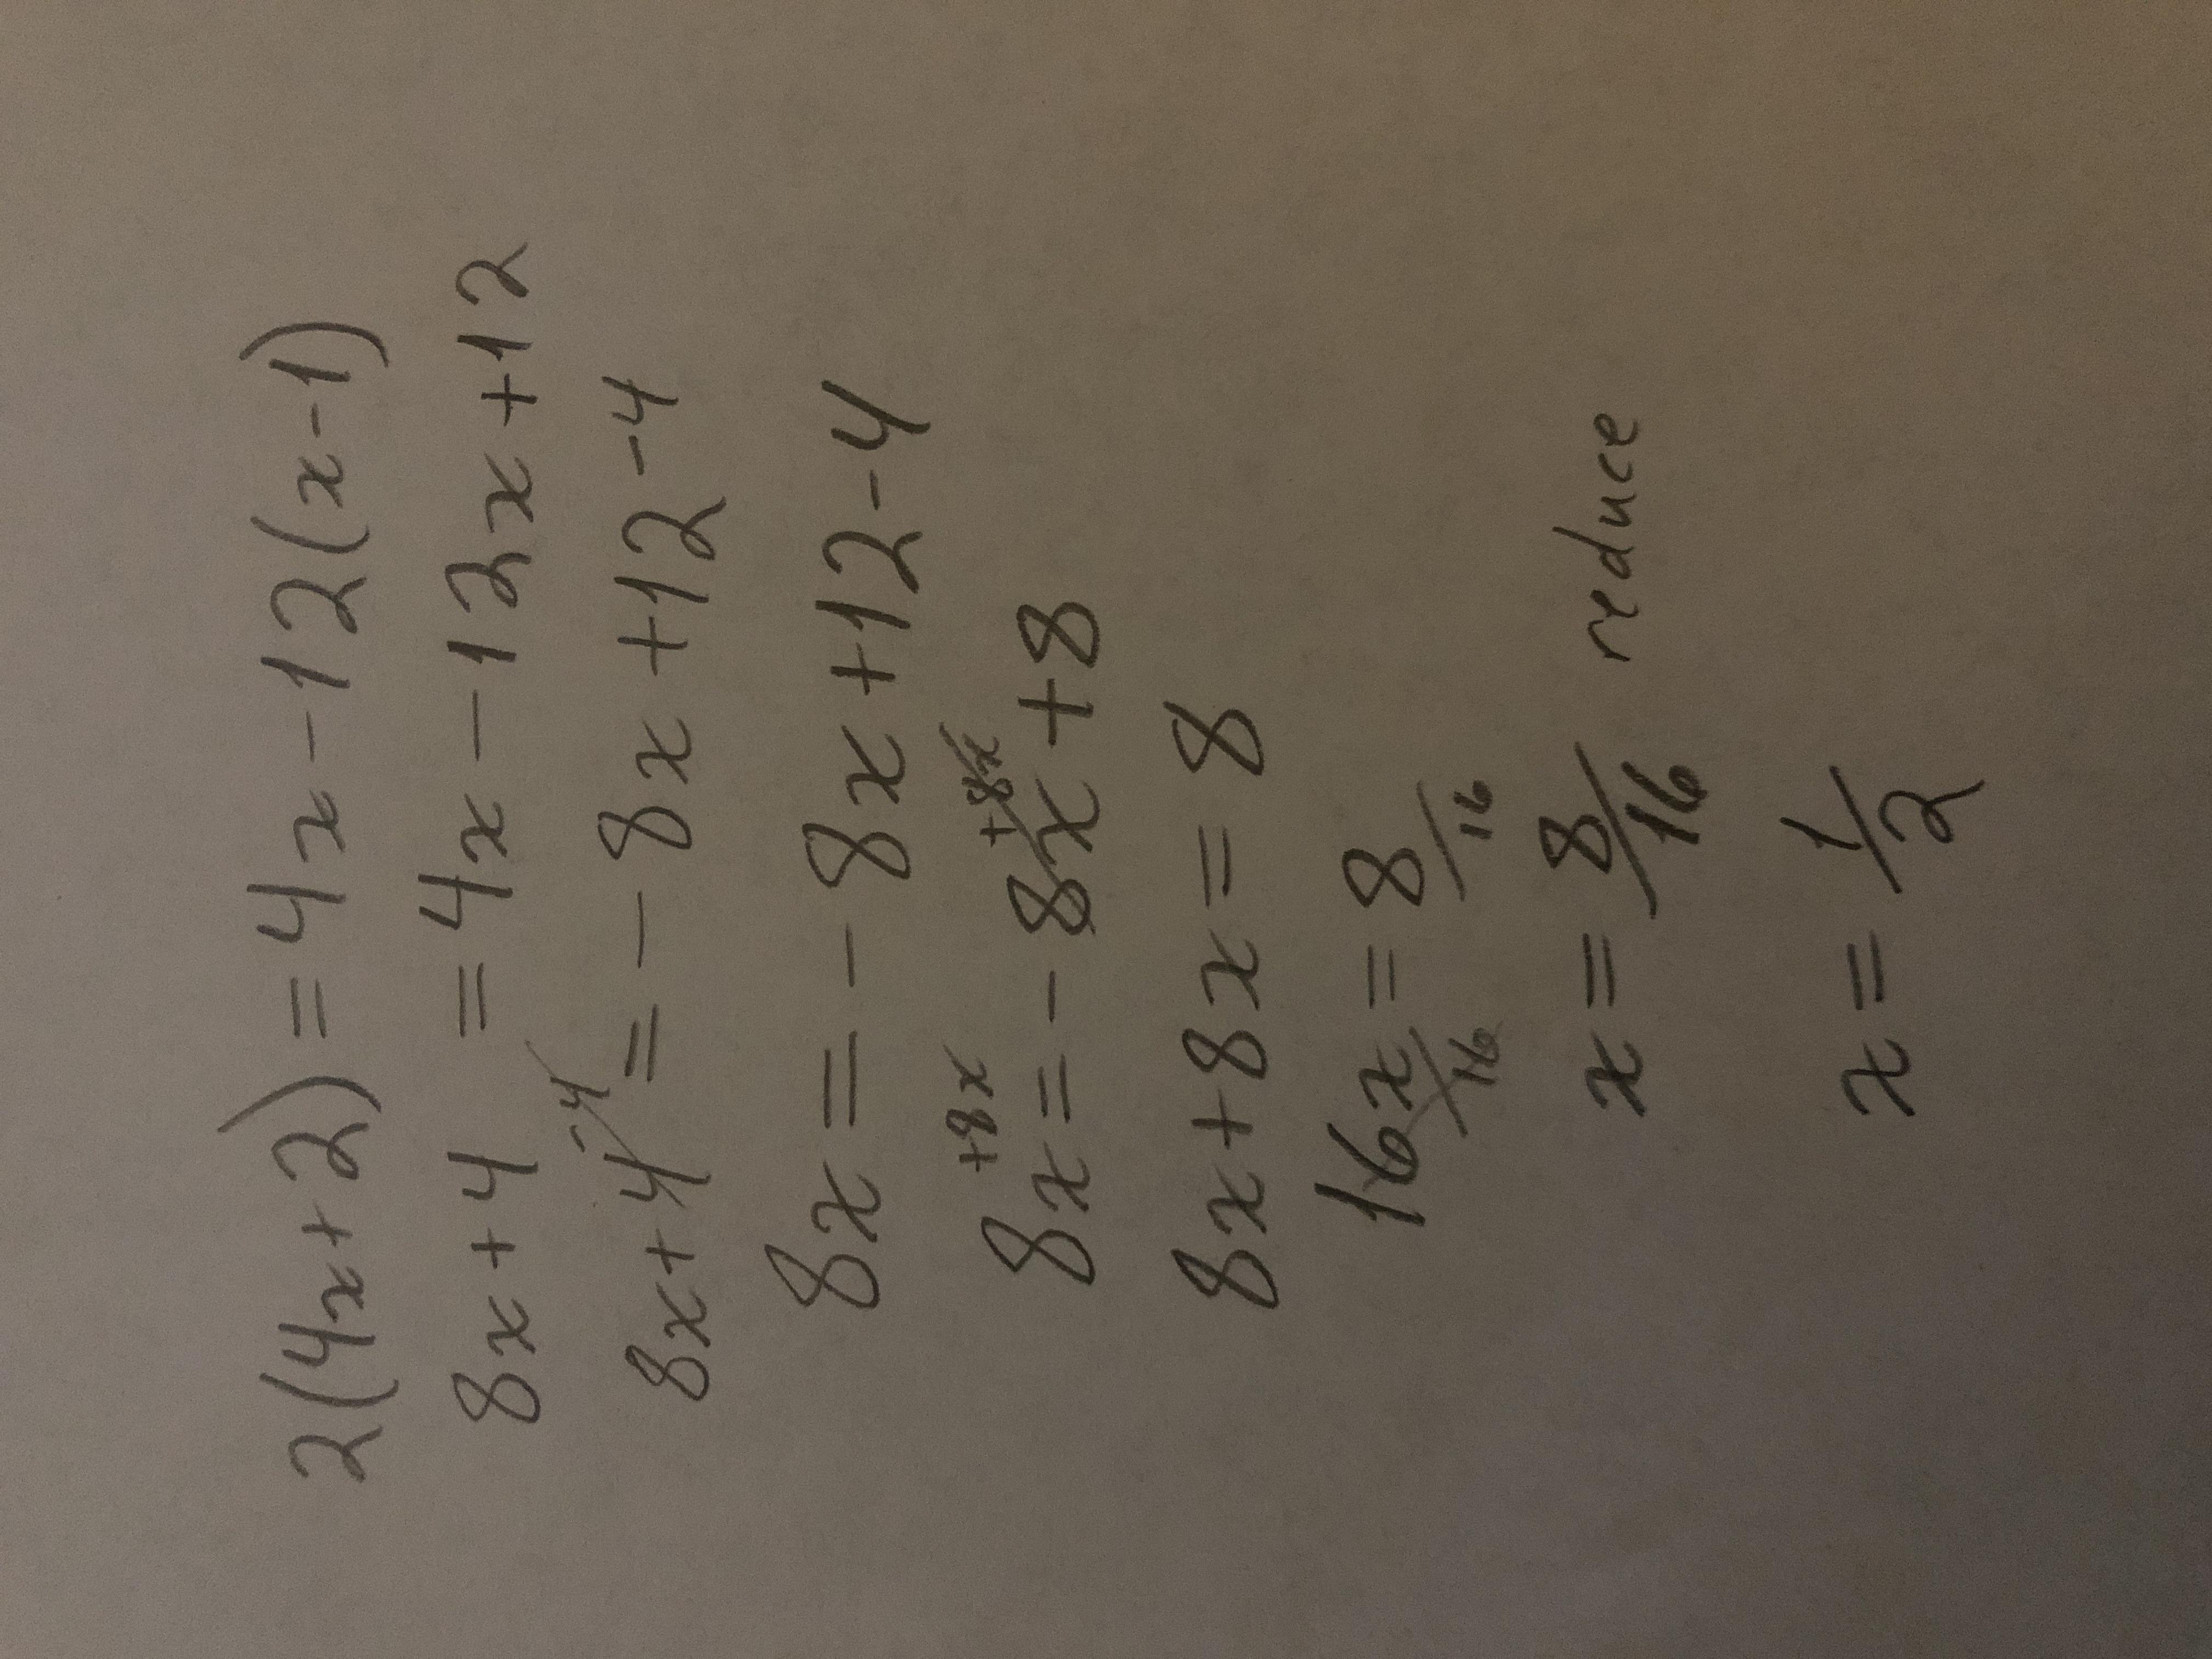 2(4x+2) = 4x - 12(x-1)
8x+4 = 4x - 12x + 12
8x+4 -4 = - 8x + 12 -4
8x = - 8x + 12 - 4
8x +8x = - 8x +8x + 8
8x + 8x = 8
16x/16 = 8/16
x = 8/16 reduce
x = 1/2